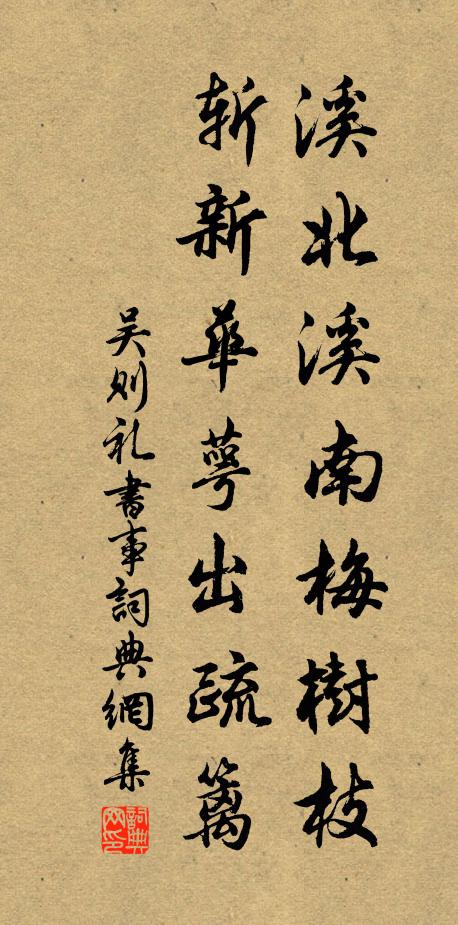 溪北溪南梅樹枝
斬新華萼出疏籬
吴則礼書事詞典網集
詞典网印